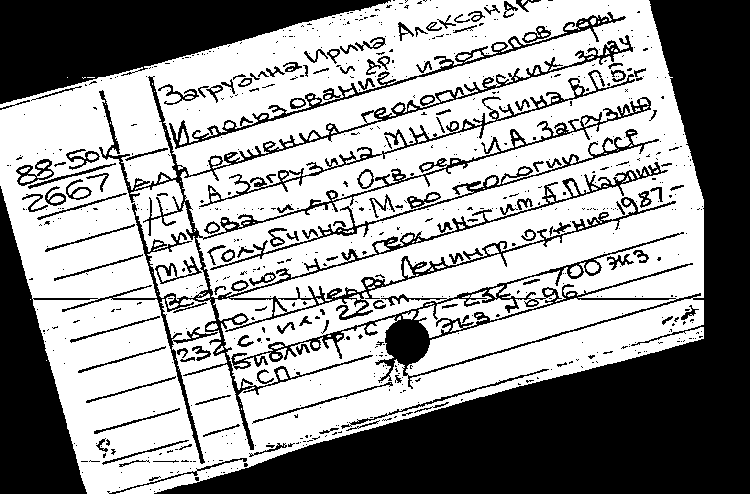 Загрузина, Ирина Александр
и др.
Использование изотопов серы
88-50к для решения геологических задач
2667 /[И.А. Загрузина, М.Н. Голубчина, В.П. Б-
динова и др.; Отв. ред. И.А. Загрузина,
М.Н. Голубчина]; М-во геологии СССР,
Всесоюз. н.-и. геол. ин-т им. А.П. Карпин-
ского. - Л.: Недра. Ленингр. отд-ние, 1987. -
232 с.: ил.; 22 cm. - 700 экз.
Библиогр.: с. 229-232. Экз. №696.
ДСП.